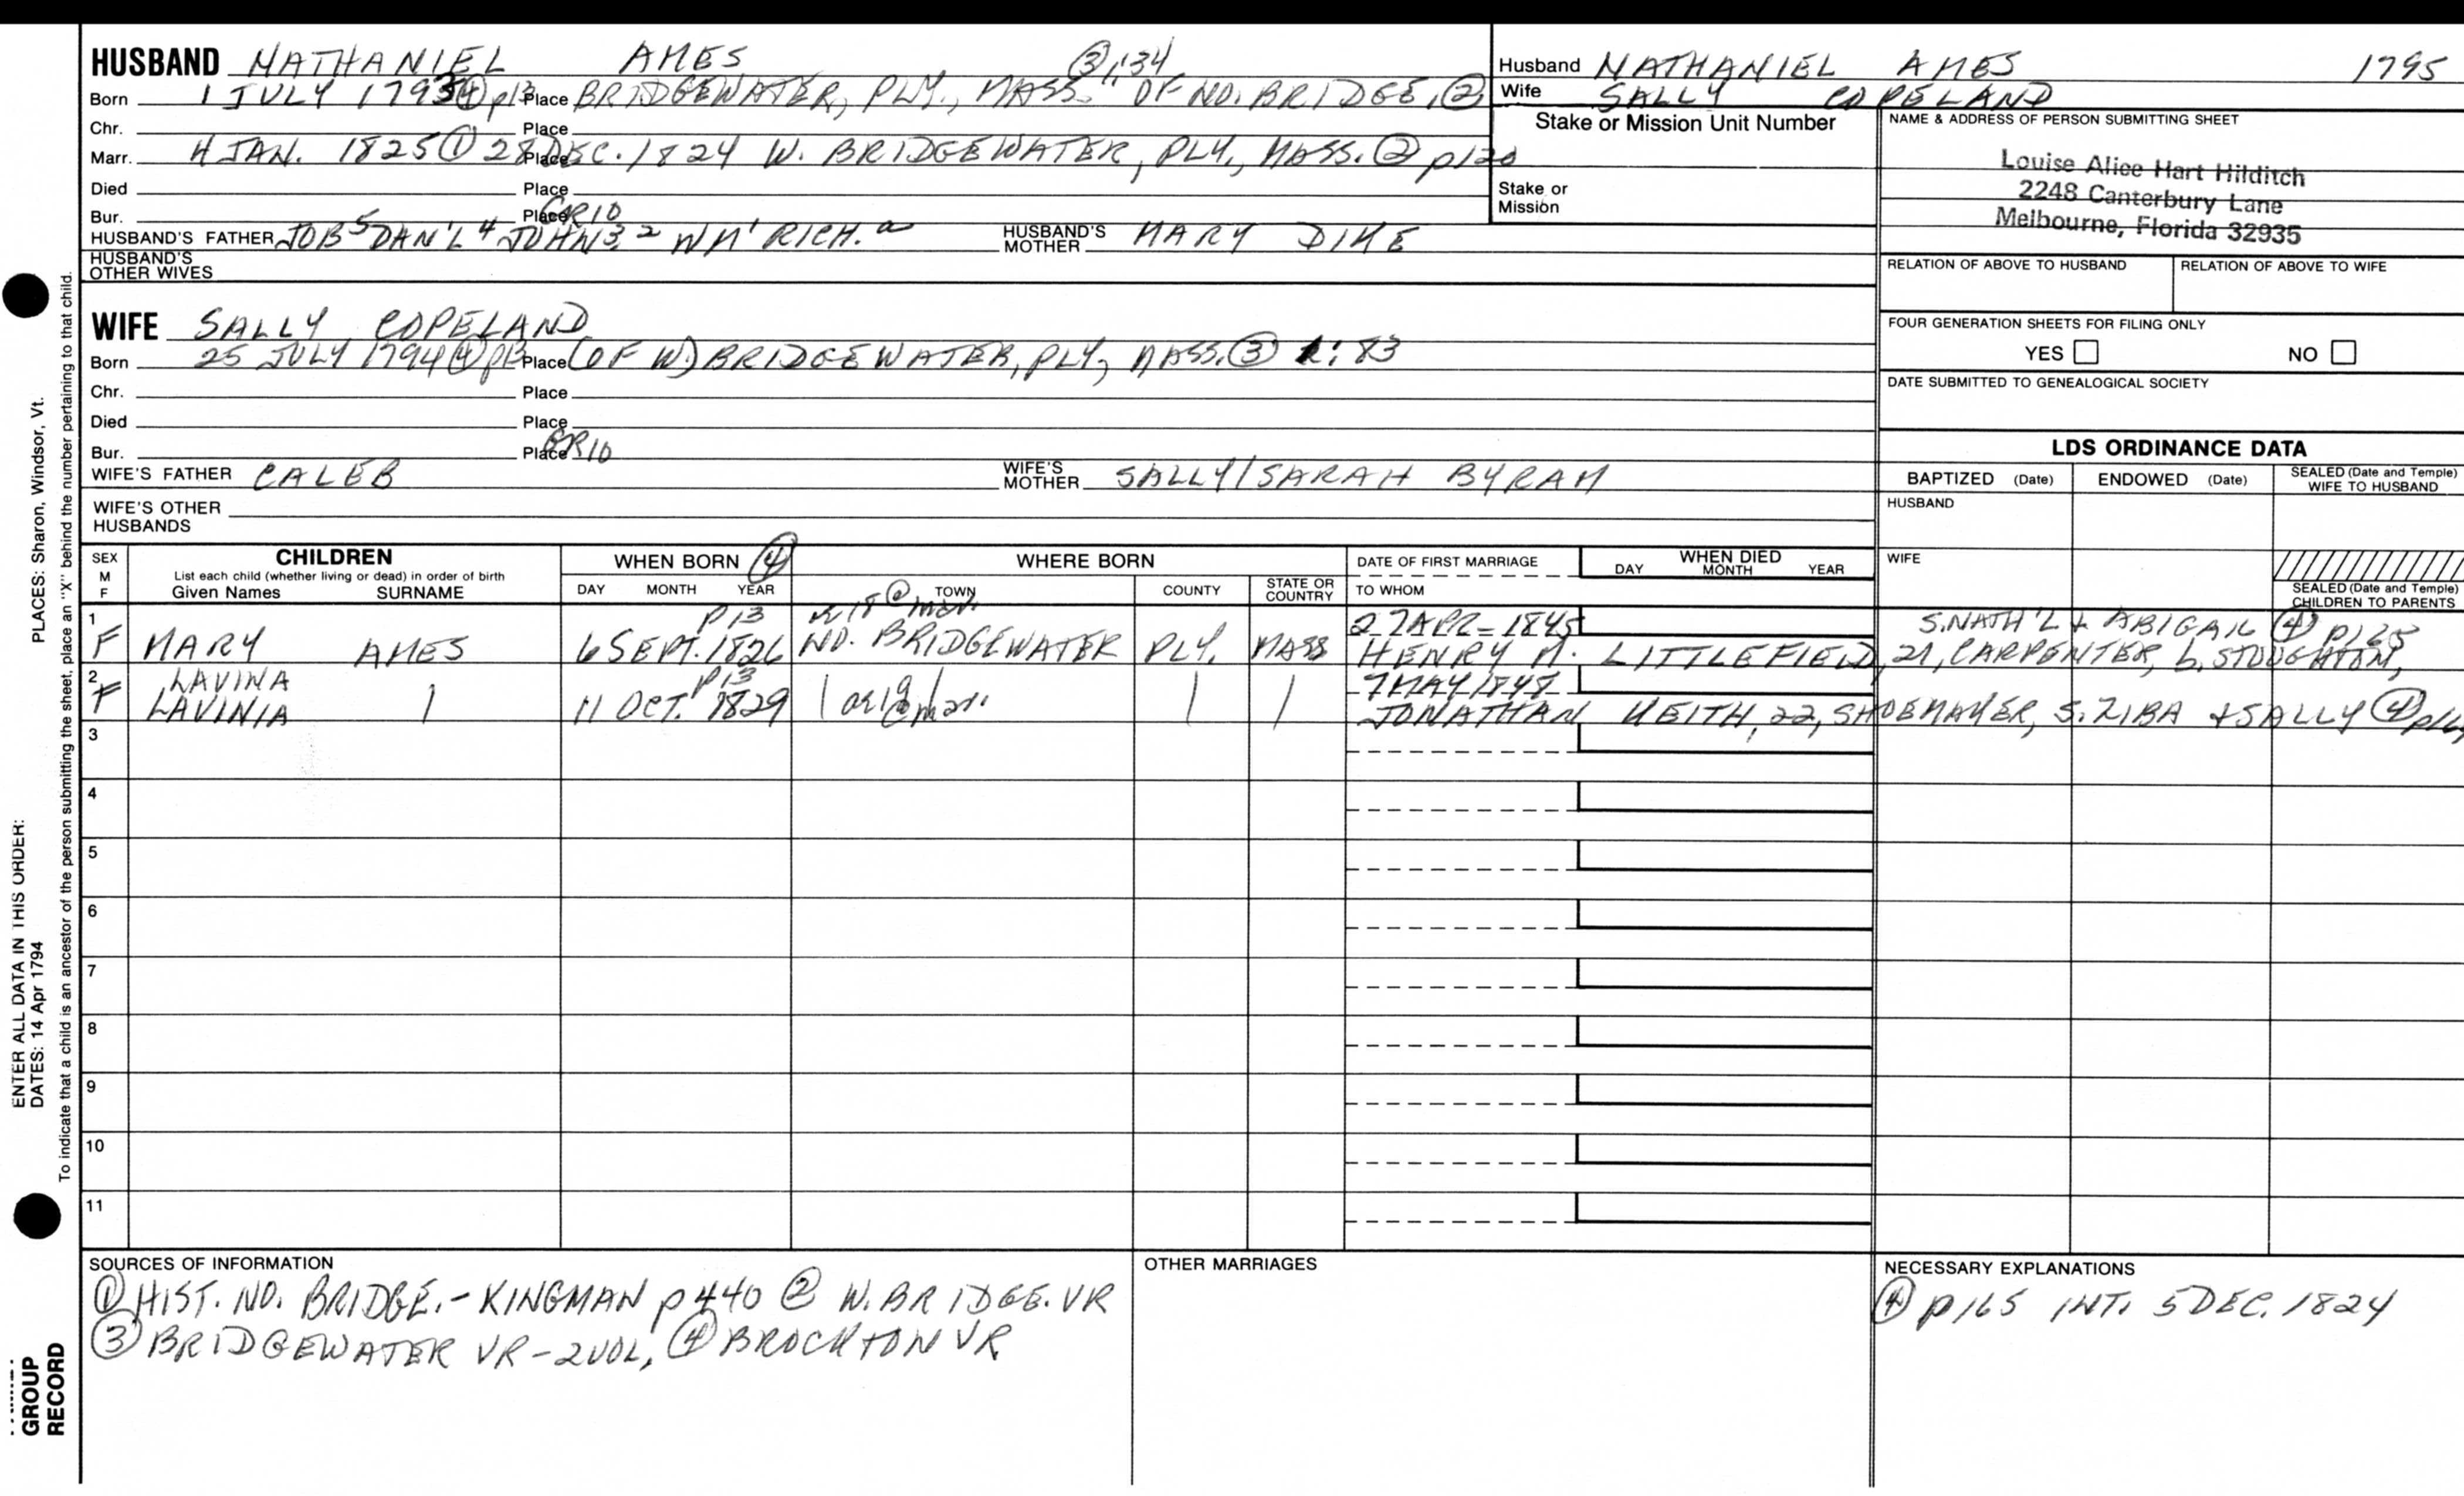 HUSBAND NATHANIEL AMES ③1:34
Born 1 JULY 179 ④ p13 Place BRIDGEWATER, PLY., MASS. "OF NO. BRIDGE, ②
Chr. Place
Marr. 4 JAN. 1825 ① 28 DEC. 1824 Place W. BRIDGEWATER, PLY, MASS. ② p120
Died Place
Bur. Place GR10
HUSBAND'S FATHER JOB⁵ DAN'L⁴ JOHN³,² WM' RICH.ᵃ HUSBAND'S MOTHER MARY DIKE
HUSBAND'S OTHER WIVES
Husband NATHANIEL AMES 1795
Wife SALLY COPELAND
Stake or Mission Unit Number
Stake or Mission
NAME & ADDRESS OF PERSON SUBMITTING SHEET
Louise Alice Hart Hilditch
2248 Canterbury Lane
Melbourne, Florida 32935
RELATION OF ABOVE TO HUSBAND RELATION OF ABOVE TO WIFE
FOUR GENERATION SHEETS FOR FILING ONLY
YES NO
DATE SUBMITTED TO GENEALOGICAL SOCIETY
WIFE SALLY COPELAND
Born 25 JULY 1794 ④ p13 Place (OF W.) BRIDGEWATER, PLY, MASS. ③ 1:83
Chr. Place
Died Place
Bur. Place GR10
WIFE'S FATHER CALEB WIFE'S MOTHER SALLY/SARAH BYRAM
WIFE'S OTHER HUSBANDS
LDS ORDINANCE DATA
BAPTIZED (Date) ENDOWED (Date) SEALED (Date and Temple) WIFE TO HUSBAND
HUSBAND
WIFE
SEALED (Date and Temple) CHILDREN TO PARENTS
SEX M F CHILDREN WHEN BORN ④ WHERE BORN DATE OF FIRST MARRIAGE WHEN DIED
List each child (whether living or dead) in order of birth
Given Names SURNAME DAY MONTH YEAR TOWN COUNTY STATE OR COUNTRY TO WHOM DAY MONTH YEAR
1 p13 @ mar. 27 APR 1845 S. NATH'L + ABIGAIL ④ p165
F MARY AMES 6 SEPT. 1826 NO. BRIDGEWATER PLY. MASS HENRY M. LITTLEFIELD, 21, CARPENTER, b. STOUGHTON,
2 LAVINA p13 7 MAY 1848
F LAVINIA 11 OCT. 1829 @ mar. JONATHAN KEITH, 22, SHOEMAKER, S. ZIBA + SALLY ④
3
4
5
6
7
8
9
10
11
SOURCES OF INFORMATION
① HIST. NO. BRIDGE. - KINGMAN p440 ② W. BRIDGE. VR
③ BRIDGEWATER VR - 2 VOL, ④ BROCKTON VR
OTHER MARRIAGES
NECESSARY EXPLANATIONS
④ p165 INT. 5 DEC. 1824
PLACES: Sharon, Windsor, Vt.
To indicate that a child is an ancestor of the person submitting the sheet, place an "X" behind the number pertaining to that child.
ENTER ALL DATA IN THIS ORDER:
DATES: 14 Apr 1794
GROUP
RECORD